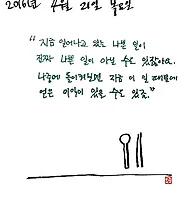 2016년 4월 21일 목요일
“지금 일어나고 있는 나쁜 일이
진짜 나쁜 일이 아닐 수도 있잖아요.
나중에 돌이켜보면 지금 이 일 때문에
얻은 이익이 있을 수도 있죠.”